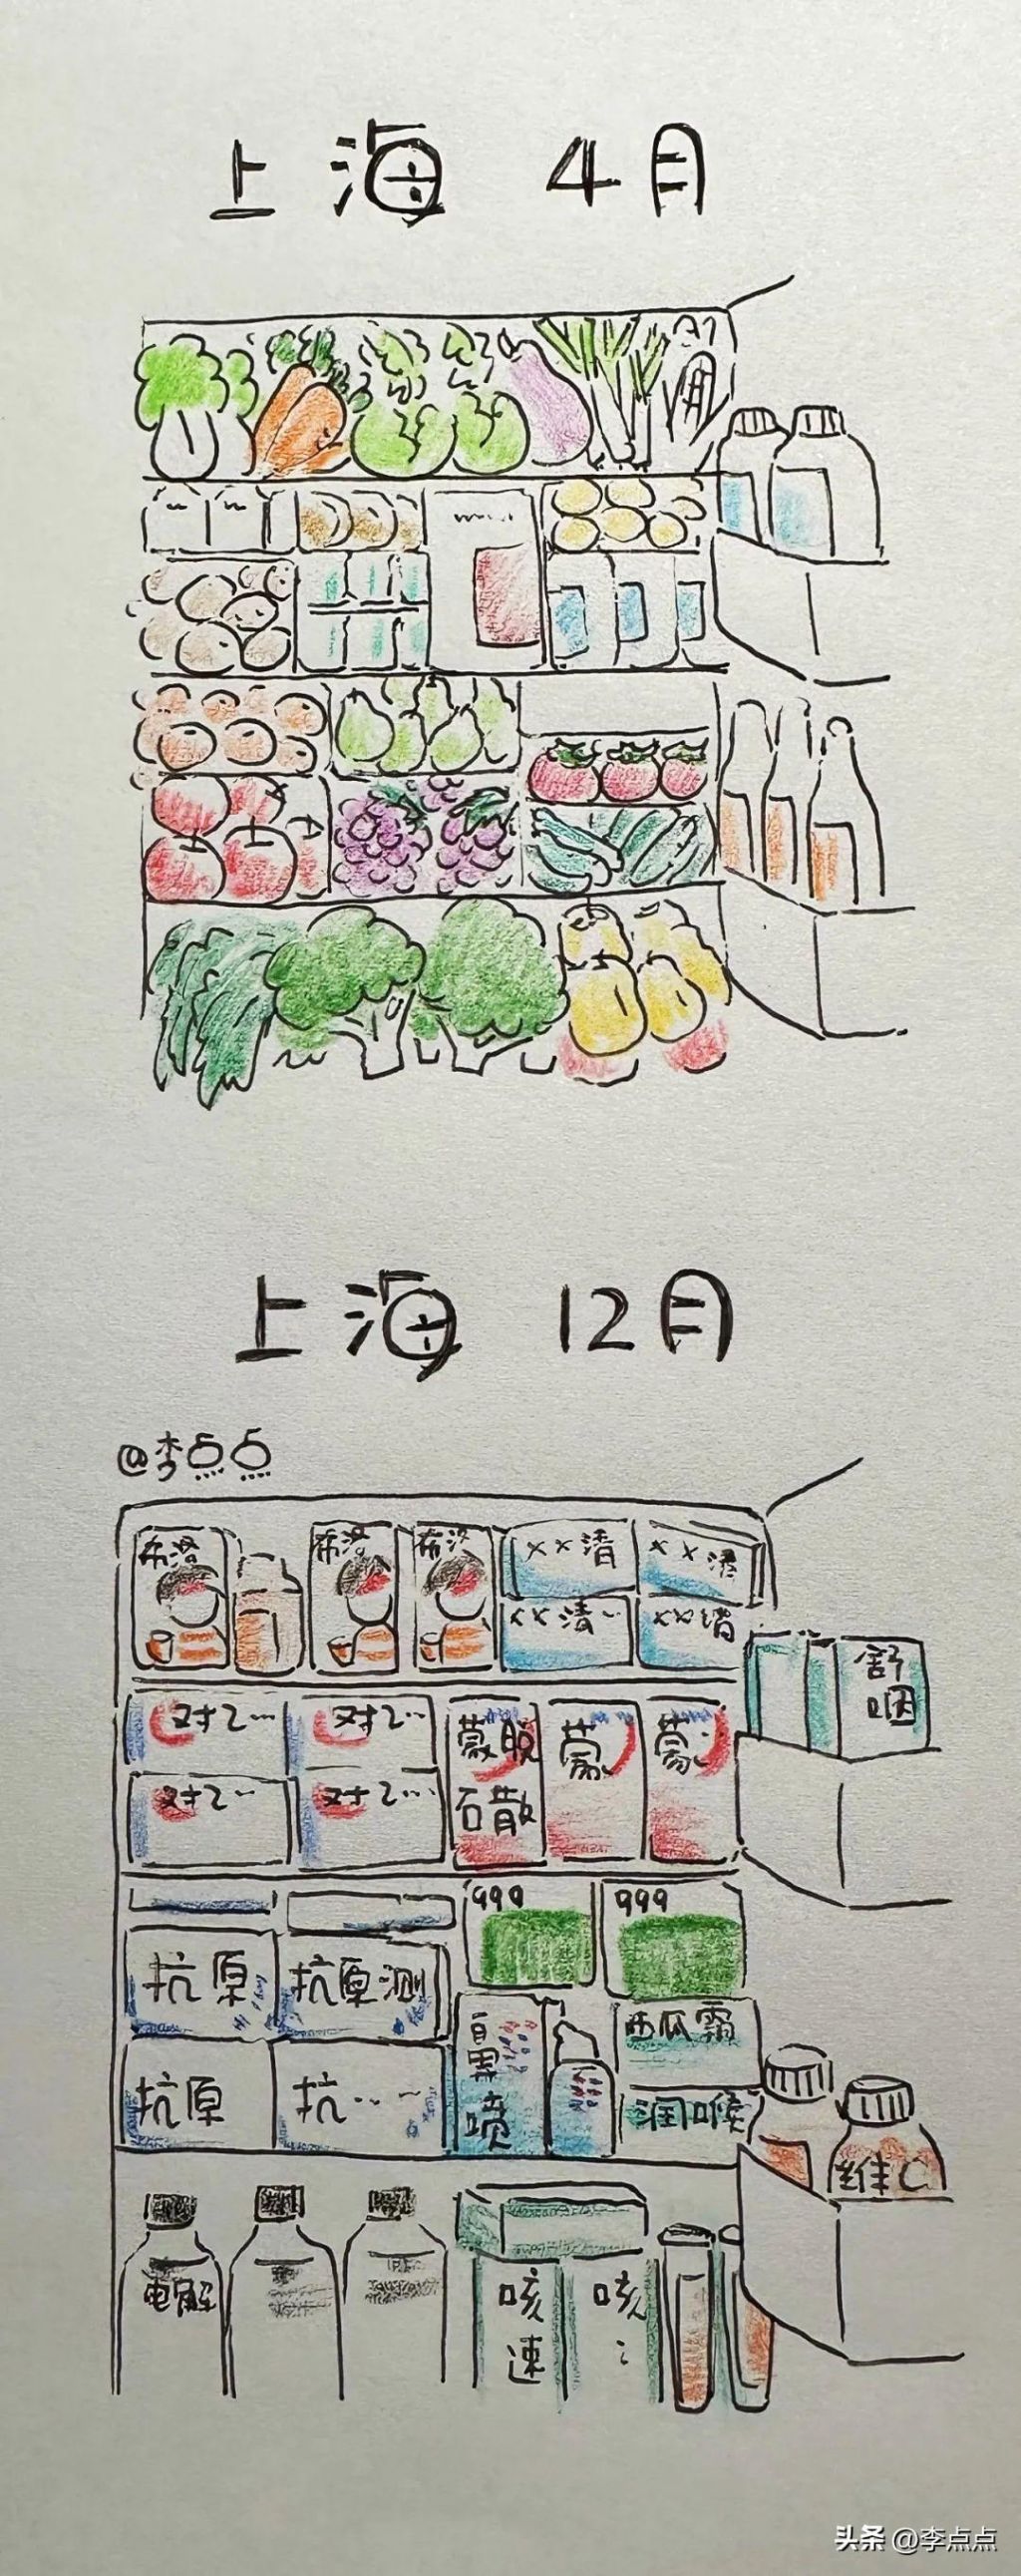 上海 4月
上海 12月
@李点点
希洛
希洛
希洛
××清
××清
××清
××清
舒咽
对乙…
对乙…
对乙…
对乙…
蒙脱石散
蒙
蒙
999
999
抗原
抗原测
抗原
抗…
鼻喷
西瓜霜
润喉
维C
电解
咳速
咳
头条 @李点点